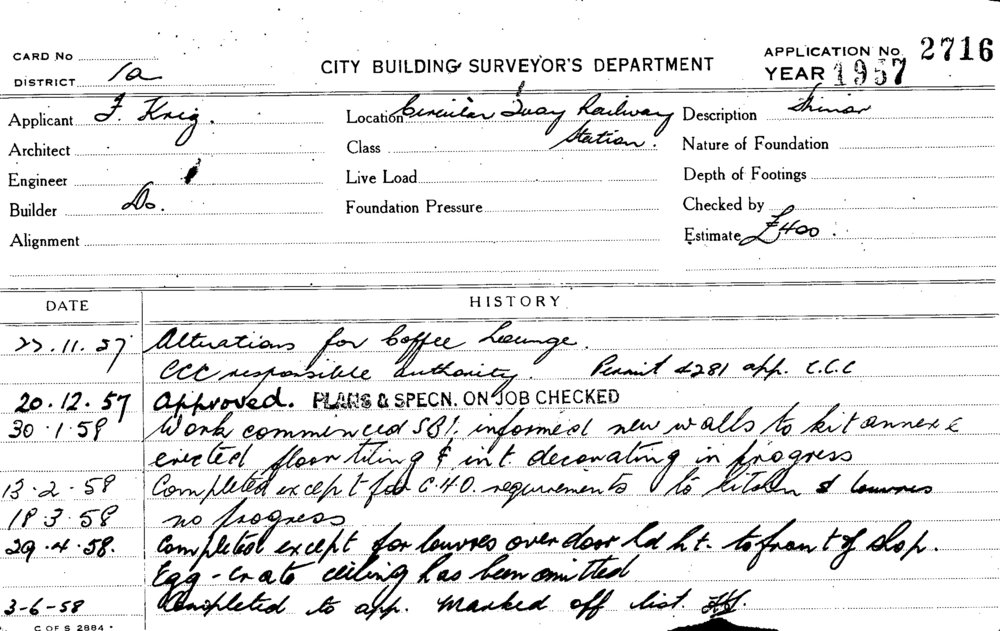 CARD No
DISTRICT 1a
CITY BUILDING SURVEYOR'S DEPARTMENT
APPLICATION No. 2716
YEAR 1957
Applicant F. Krig.
Location Circular Quay Railway Station.
Description Minor
Architect
Class
Nature of Foundation
Engineer
Live Load
Depth of Footings
Builder Do.
Foundation Pressure
Checked by
Alignment
Estimate £400.
DATE HISTORY
27.11.57 Alterations for Coffee Lounge.
CCC responsible authority. Permit 4281 app. C.C.C
20.12.57 Approved. PLANS & SPECN. ON JOB CHECKED
30.1.58 Work commenced informed new walls to kit annexe
erected floor tiling & int. decorating in progress
13-2-58 Completed except for C.H.O. requirements to kitchen & louvres
18 3.58 no progress
29.4.58. Completed except for louvres over door hd ht. to front of shop.
Egg-crate ceiling has been omitted
3-6-58 Completed to app. Marked off list.
C OF S 2884